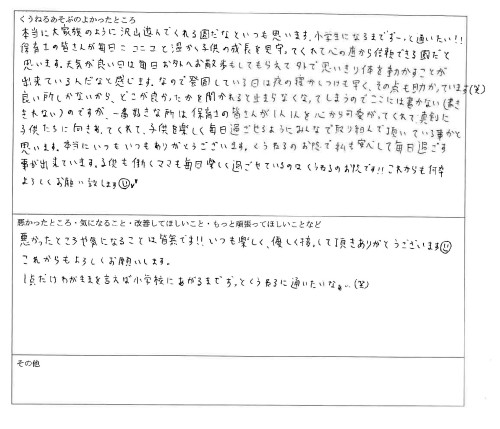 くうねるあそぶのよかったところ
本当に大家族のように沢山遊んでくれる園だなといつも思います。小学生になるまでずーっと通いたい!!
保育士の皆さんが毎日ニコニコと温かく子供の成長を見守ってくれて心の底から信頼できる園だと
思います。天気が良い日は毎日お外へお散歩もしてもらえて外で思いきり体を動かすことが
出来ているんだなと感じます。なので登園している日は夜の寝かしつけも早く、その点も助かっています(笑)
良い所しかないから、どこが良かったかを聞かれると止まらなくなってしまうのでここには書かない(書き
きれない)のですが、一番好きな所は保育士の皆さんが1人1人を心から可愛がってくれて、真剣に
子供たちに向き合ってくれて、子供を楽しく毎日過ごせるようにみんなで取り組んで頂いている事かと
思います。本当にいつもいつもありがとうございます。くうねるのお陰で私も安心して毎日過ごす
事が出来ています。子供も働くママも毎日楽しく過ごせているのはくうねるのお陰です!!これからも何卒
よろしくお願い致します
悪かったところ・気になること・改善してほしいこと・もっと頑張ってほしいことなど
悪かったところや気になることは皆無です!!いつも楽しく、優しく接して頂きありがとうございます
これからもよろしくお願いします。
1点だけわがままを言えば小学校にあがるまでずっとくうねるに通いたいなぁ…(笑)
その他